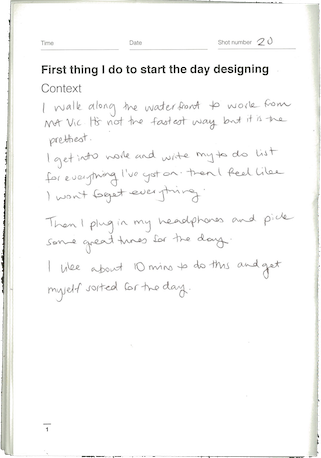 Time Date Shot number 20
First thing I do to start the day designing
Context
I walk along the waterfront to work from
Mt Vic. It's not the fastest way but it is the
prettiest.
I get into work and write my to do list
for everything I've got on. then I feel like
I won't forget everything.
Then I plug in my headphones and pick
some great tunes for the day.
I like about 10 mins to do this and get
myself sorted for the day.
1